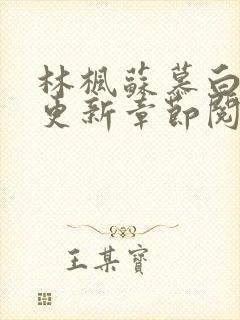 林楓蘇慕白
更新章節閱
王某寶